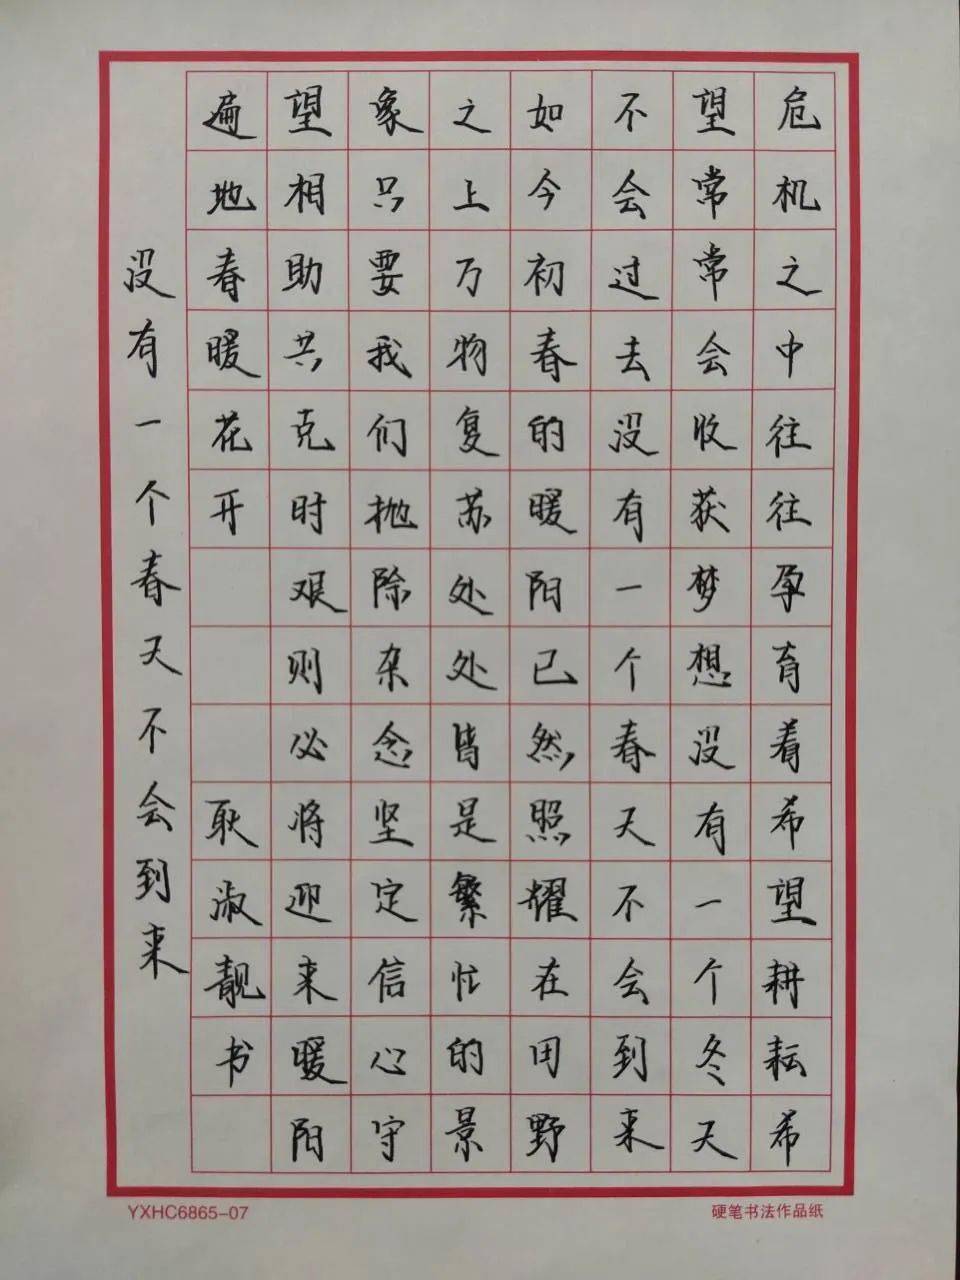 危机之中往往孕育着希望耕耘希
望常常会收获梦想没有一个冬天
不会过去没有一个春天不会到来
如今初春的暖阳已然照耀在田野
之上万物复苏处处皆是繁忙的景
象只要我们抛除杂念坚定信心守
望相助共克时艰则必将迎来暖阳
遍地春暖花开
耿淑靓书
没有一个春天不会到来
YXHC6865-07
硬笔书法作品纸